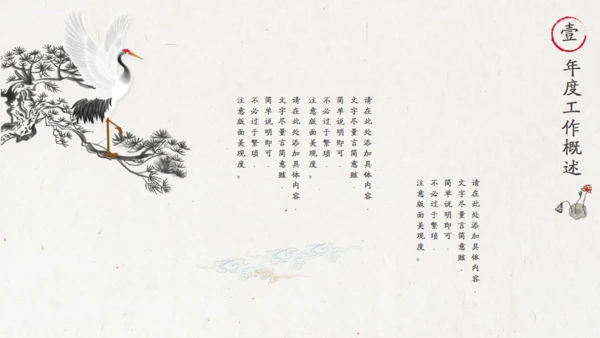 壹
年度工作概述
请在此处添加具体内容，
文字尽量言简意赅，
简单说明即可，
不必过于繁琐，
注意版面美观度。
请在此处添加具体内容，
文字尽量言简意赅，
简单说明即可，
不必过于繁琐，
注意版面美观度。
请在此处添加具体内容，
文字尽量言简意赅，
简单说明即可，
不必过于繁琐，
注意版面美观度。